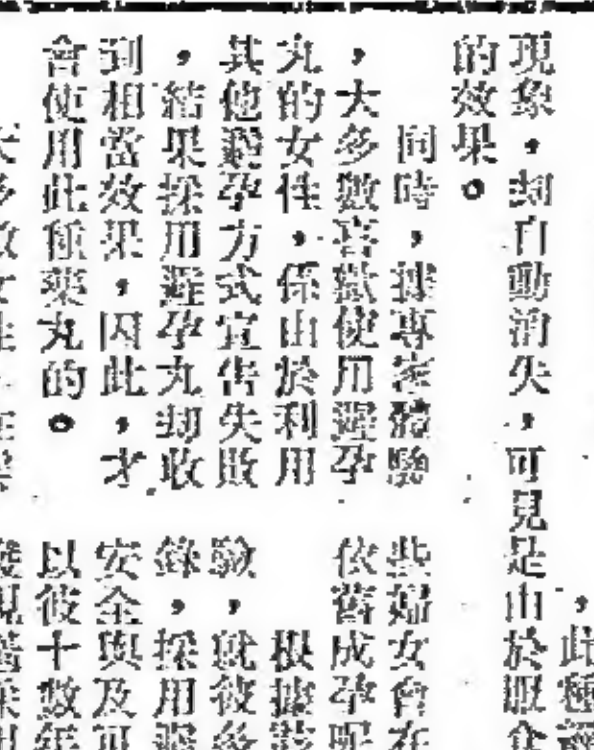 ，此種
現象，却自動消失，可見是由於服食
的效果。
同時，據專家體驗
，大多數喜歡使用避孕
丸的女性，係由於利用
其他避孕方式宣告失敗
，結果採用避孕丸却收
到相當效果，因此，才
會使用此種藥丸的。
些婦女會在
依舊成孕呢
根據
驗，就彼
錄，採用避
安全與及可
以彼十數年